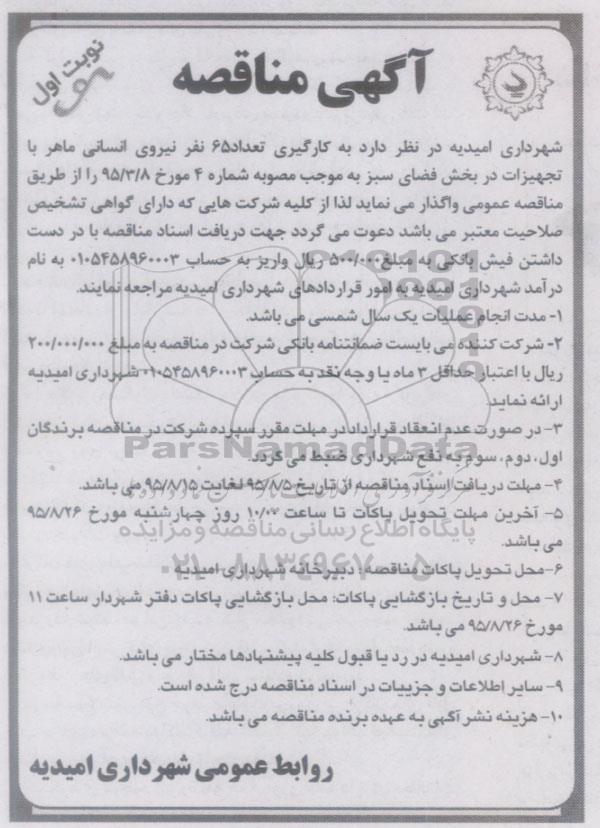 نوبت اول
آگهی مناقصه
شهرداری امیدیه در نظر دارد به کارگیری تعداد۶۵ نفر نیروی انسانی ماهر با
تجهیزات در بخش فضای سبز به موجب مصوبه شماره ۴ مورخ ۹۵/۳/۸ را از طریق
مناقصه عمومی واگذار می نماید لذا از کلیه شرکت هایی که دارای گواهی تشخیص
صلاحیت معتبر می باشد دعوت می گردد جهت دریافت اسناد مناقصه با در دست
داشتن فیش بانکی به مبلغ۵۰۰/۰۰۰ ریال واریز به حساب ۰۱۰۵۴۵۸۹۶۰۰۰۳ به نام
درآمد شهرداری امیدیه به امور قراردادهای شهرداری امیدیه مراجعه نمایند.
۱- مدت انجام عملیات یک سال شمسی می باشد.
۲- شرکت کننده می بایست ضمانتنامه بانکی شرکت در مناقصه به مبلغ ۲۰۰/۰۰۰/۰۰۰
ریال با اعتبار حداقل ۳ ماه یا وجه نقد به حساب ۰۱۰۵۴۵۸۹۶۰۰۰۳ شهرداری امیدیه
ارائه نماید.
۳- در صورت عدم انعقاد قرارداد در مهلت مقرر سپرده شرکت در مناقصه برندگان
ParsNamadData
اول، دوم، سوم به نفع شهرداری ضبط می گردد.
۴- مهلت دریافت اسناد مناقصه از تاریخ ۹۵/۸/۵ لغایت ۹۵/۸/۱۵ می باشد.
۵- آخرین مهلت تحویل پاکات تا ساعت ۱۰/۰۰ روز چهارشنبه مورخ ۹۵/۸/۲۶
پایگاه اطلاع رسانی مناقصه و مزایده
می باشد.
۰۲۱-۸۸۳۴۹۶۷۰-۵
۶-محل تحویل پاکات مناقصه : دبیرخانه شهرداری امیدیه
۷- محل و تاریخ بازگشایی پاکات: محل بازگشایی پاکات دفتر شهردار ساعت ۱۱
مورخ ۹۵/۸/۲۶ می باشد.
۸- شهرداری امیدیه در رد یا قبول کلیه پیشنهادها مختار می باشد.
۹- سایر اطلاعات و جزییات در اسناد مناقصه درج شده است.
۱۰- هزینه نشر آگهی به عهده برنده مناقصه می باشد.
روابط عمومی شهرداری امیدیه